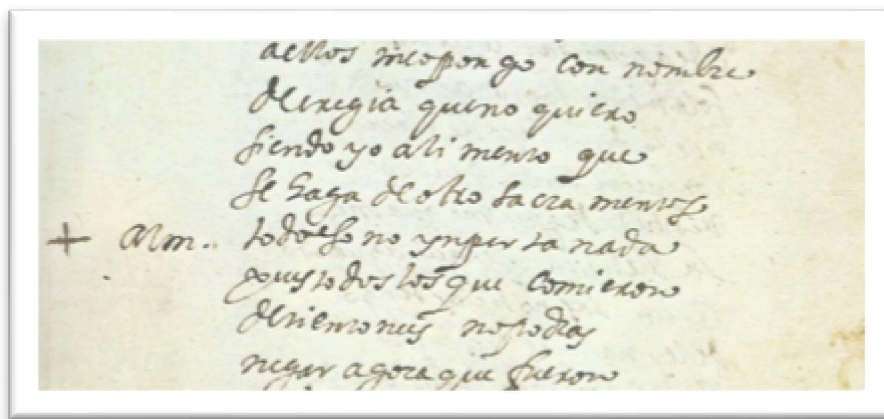 aellos meopongo con nombre
deeregia queno quiero
siendo yo alimento que
se haga de otro sacramentos
+ Alm. todo eso no ynporta nada
pues todos los que comieron
no podras
negar agora que fueron